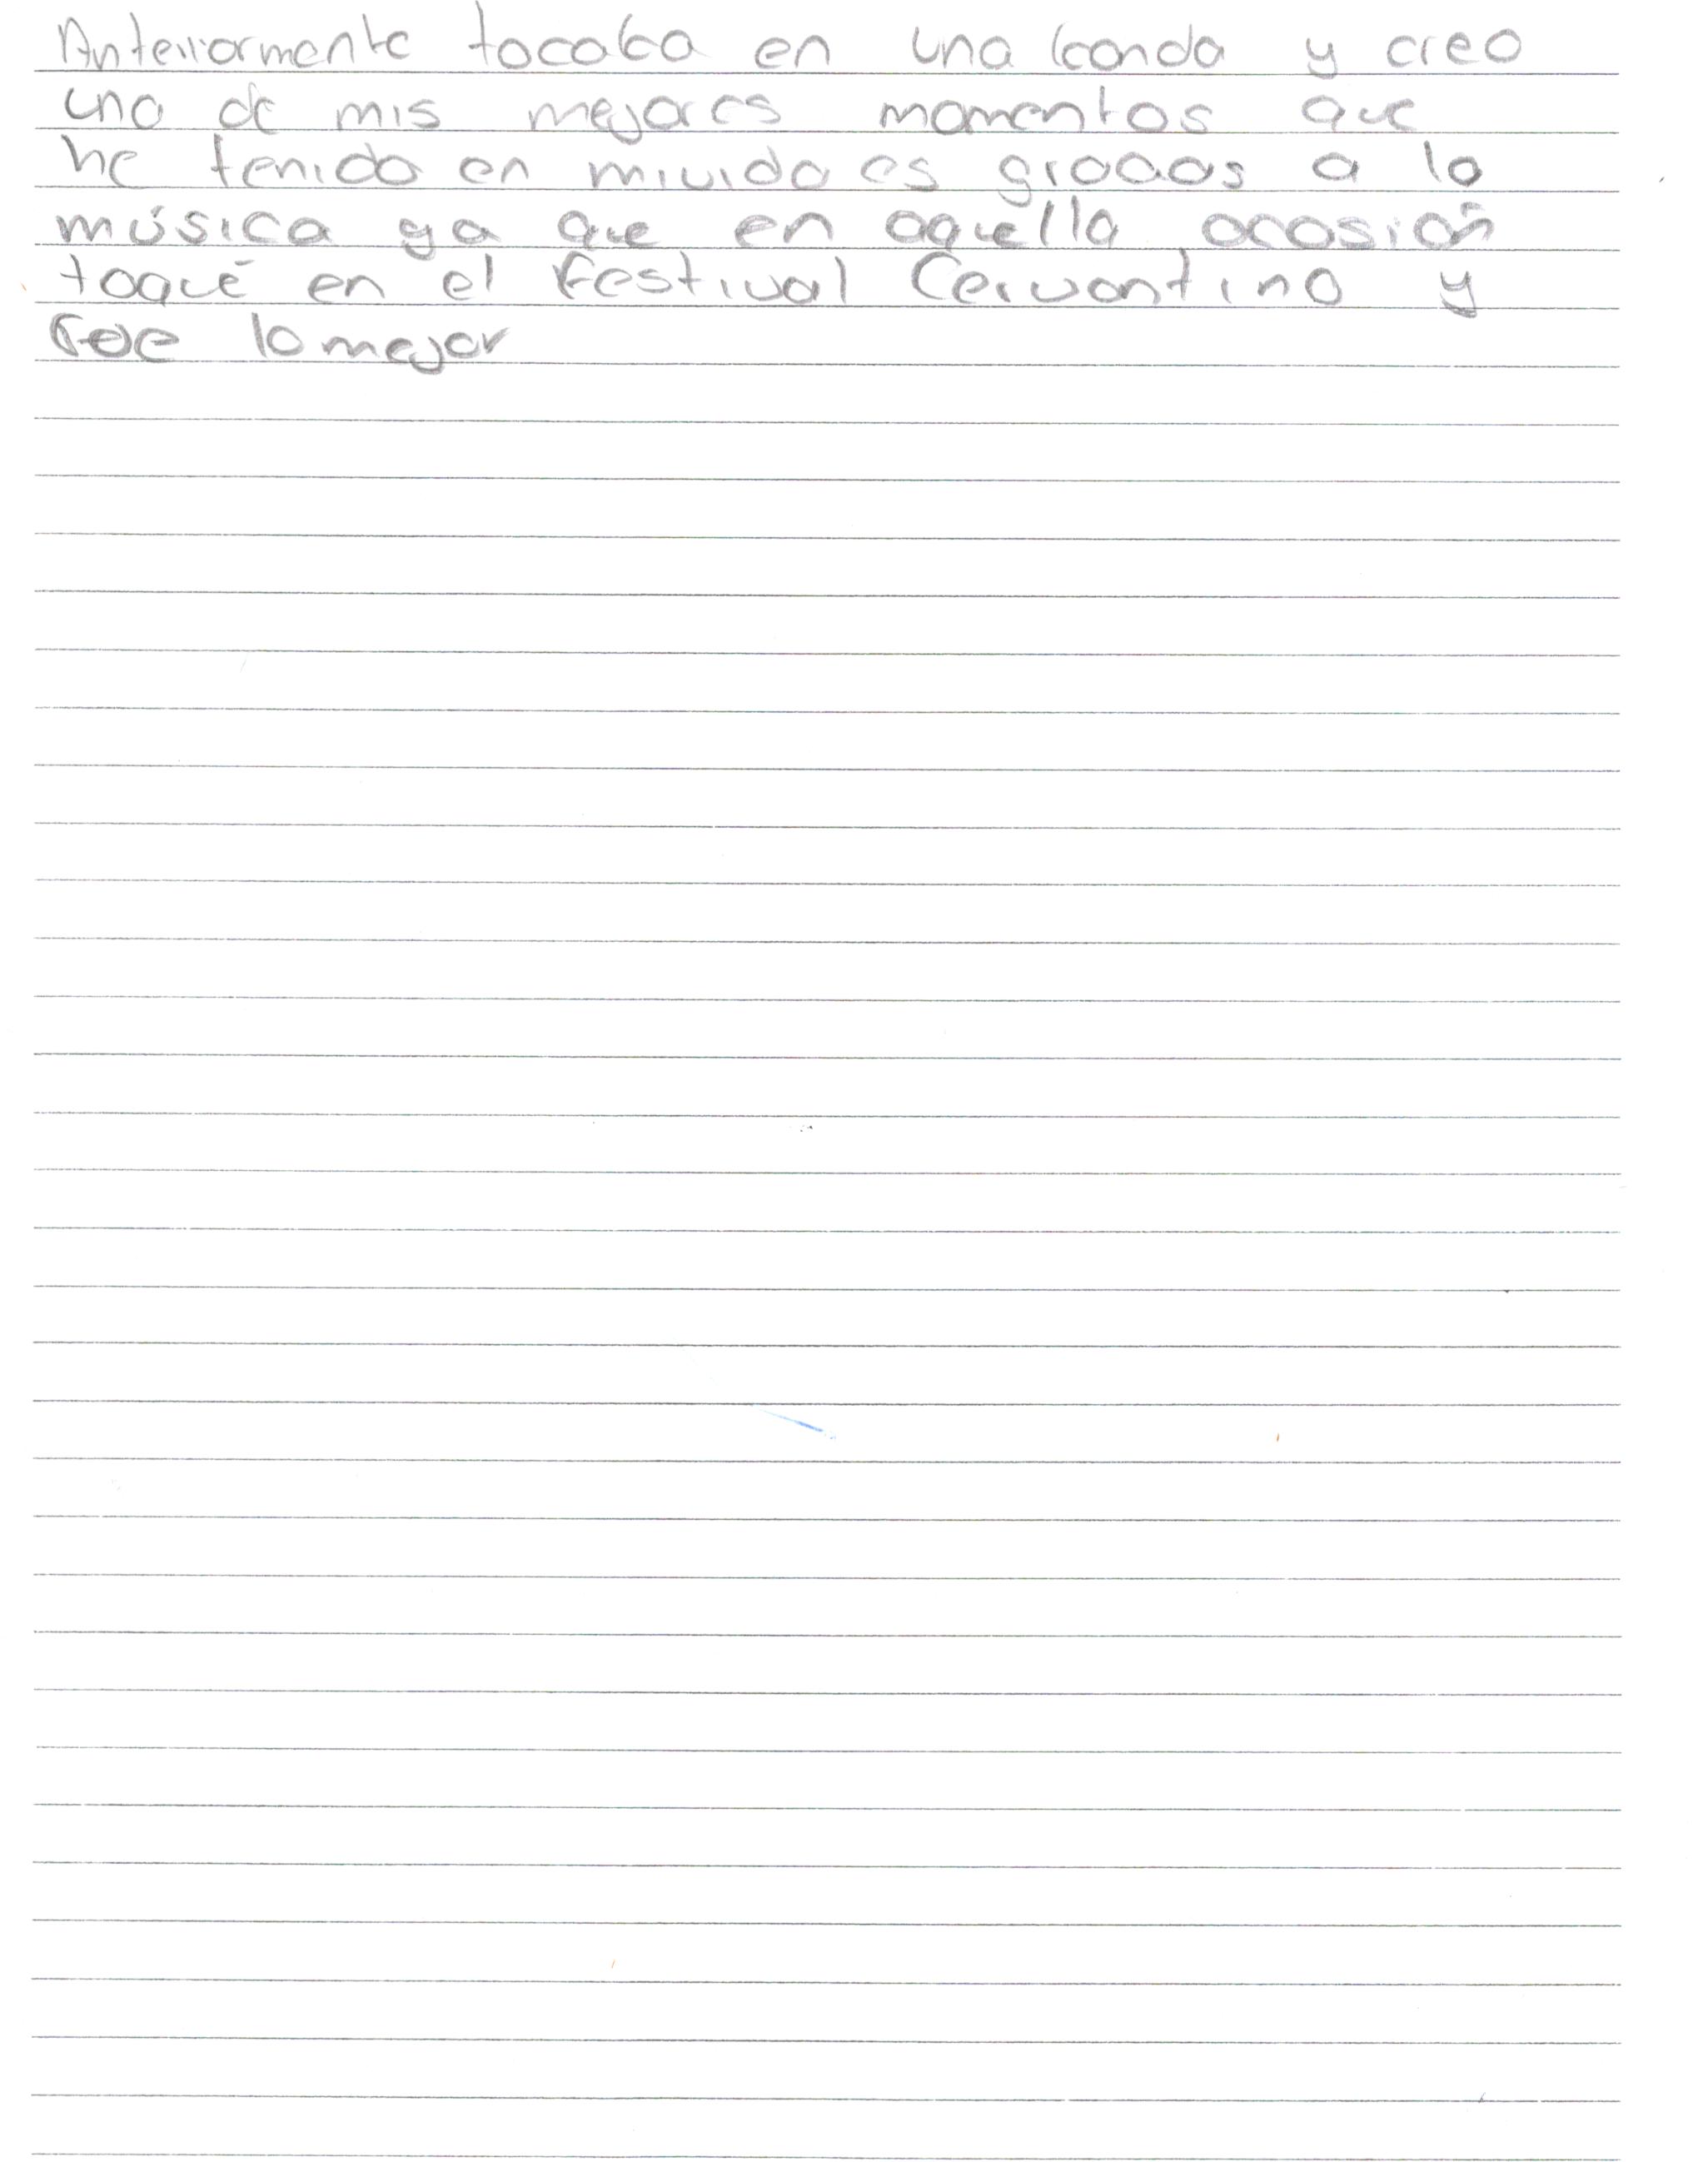 Anteriormente tocaba en una banda y creo
uno de mis mejores momentos que
he tenido en mi vida es gracias a la
música ya que en aquella ocasión
toqué en el festival Cervantino y
fue lo mejor